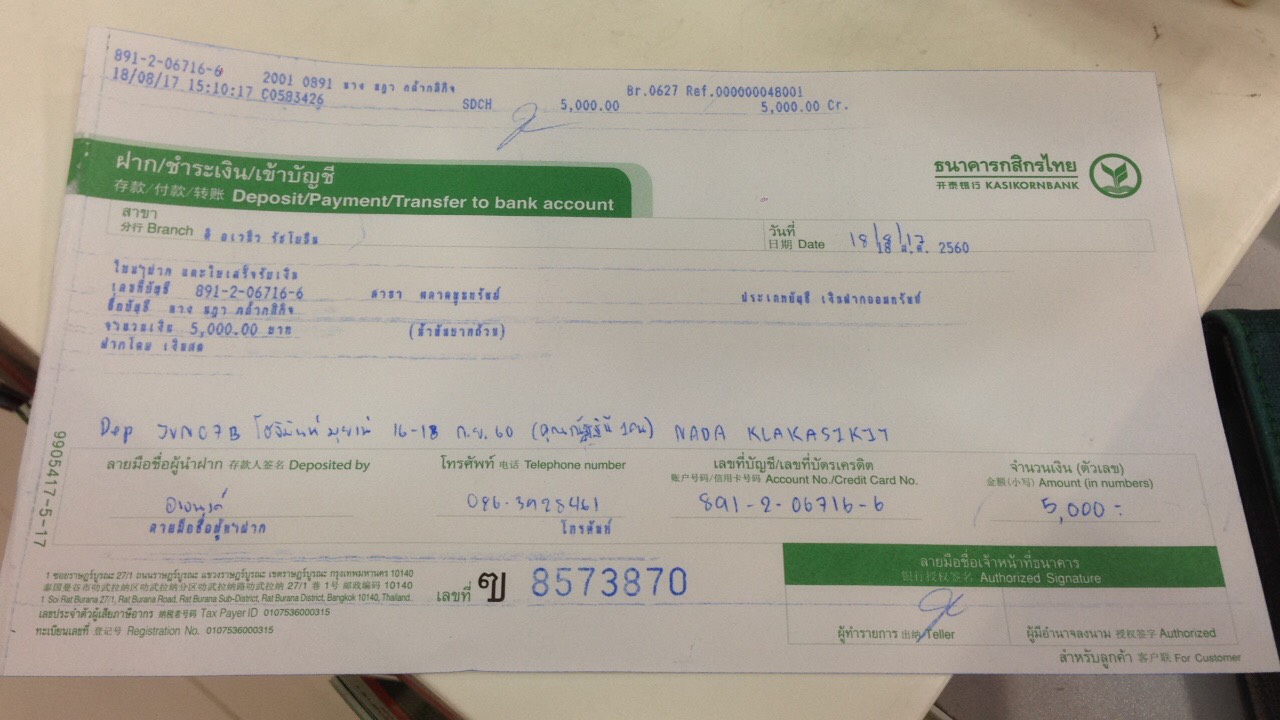 891-2-06716-6 2001 0891 นาง นฎา กล้ากสิกิจ Br.0627 Ref.000000048001
18/08/17 15:10:17 C0583426 SDCH 5,000.00 5,000.00 Cr.
ฝาก/ชำระเงิน/เข้าบัญชี
存款/付款/转账 Deposit/Payment/Transfer to bank account
ธนาคารกสิกรไทย
开泰银行 KASIKORNBANK
สาขา
分行 Branch ดิ อเวนิว รัชโยธิน
วันที่
日期 Date 18/8/17
18 ส.ค. 2560
ใบนำฝาก และใบเสร็จรับเงิน
เลขที่บัญชี 891-2-06716-6 สาขา ตลาดพูนทรัพย์ ประเภทบัญชี เงินฝากออมทรัพย์
ชื่อบัญชี นาง นฎา กล้ากสิกิจ
จำนวนเงิน 5,000.00 บาท (ห้าพันบาทถ้วน)
ฝากโดย เงินสด
Dep JVN07B โฮจิมินห์ มุยเน่ 16-18 ก.ย. 60 1คน) NADA KLAKASIKIT
ลายมือชื่อผู้นำฝาก 存款人签名 Deposited by
โทรศัพท์ 电话 Telephone number
เลขที่บัญชี/เลขที่บัตรเครดิต
账户号码/信用卡号码 Account No./Credit Card No.
จำนวนเงิน (ตัวเลข)
金额(小写) Amount (in numbers)
891-2-06716-6 5,000:-
ลายมือชื่อผู้นำฝาก โทรศัพท์
9905417-5-17
1 ซอยราษฎร์บูรณะ 27/1 ถนนราษฎร์บูรณะ แขวงราษฎร์บูรณะ เขตราษฎร์บูรณะ กรุงเทพมหานคร 10140
泰国曼谷市叻武拉纳区叻武拉纳分区叻武拉纳路叻武拉纳 27/1 巷 1 号 邮政编码 10140
1 Soi Rat Burana 27/1, Rat Burana Road, Rat Burana Sub-District, Rat Burana District, Bangkok 10140, Thailand.
เลขประจำตัวผู้เสียภาษีอากร 纳税者号码 Tax Payer ID 0107536000315
ทะเบียนเลขที่ 登记号 Registration No. 0107536000315
เลขที่ ฃ 8573870
ลายมือชื่อเจ้าหน้าที่ธนาคาร
银行授权签名 Authorized Signature
ผู้ทำรายการ 出纳 Teller
ผู้มีอำนาจลงนาม 授权签字 Authorized
สำหรับลูกค้า 客户联 For Customer